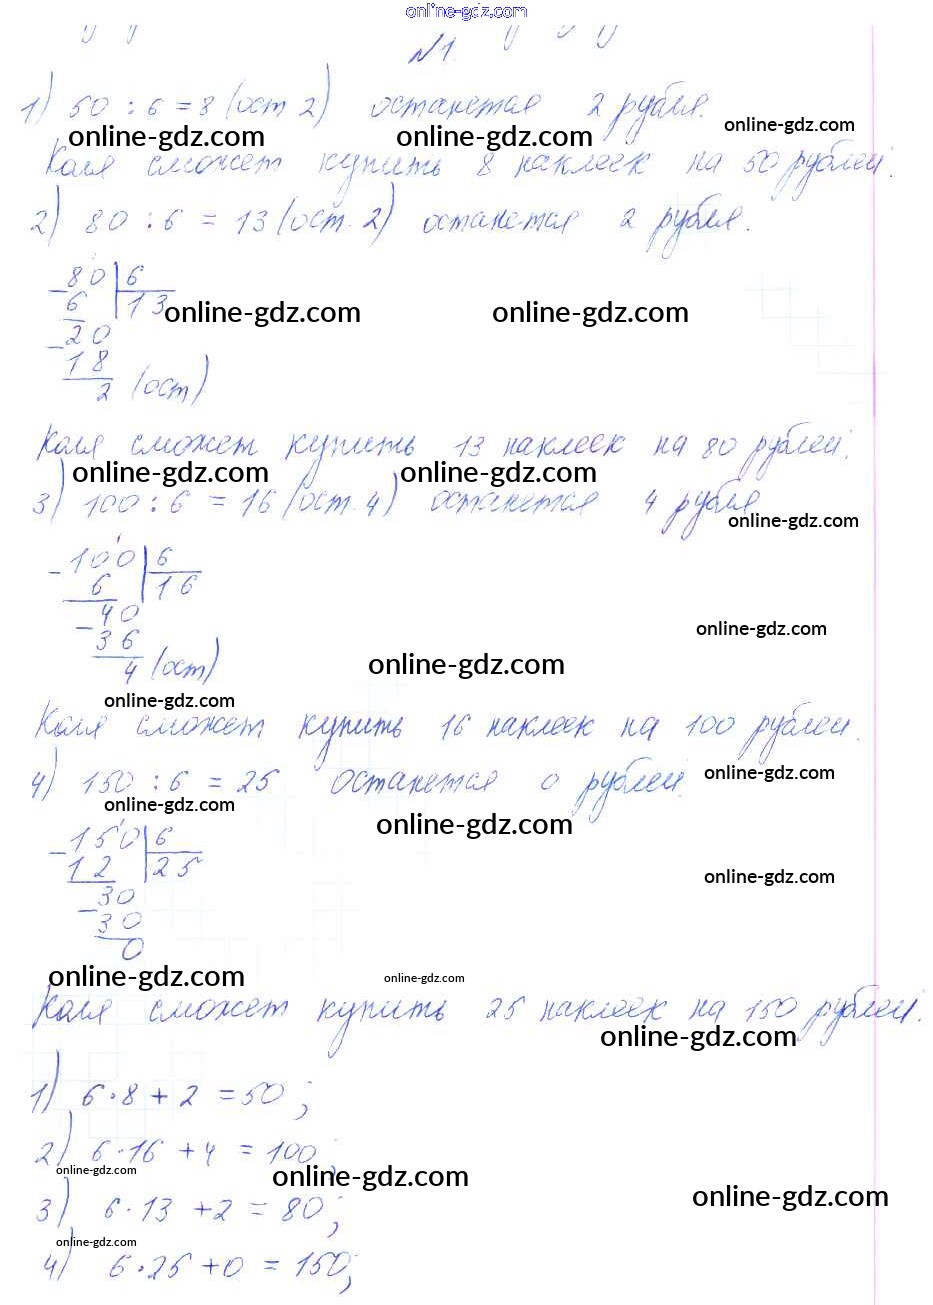 online-gdz.com
№1.
1) 50 : 6 = 8 (ост 2) останется 2 рубля.
online-gdz.com online-gdz.com online-gdz.com
Коля сможет купить 8 наклеек на 50 рублей.
2) 80 : 6 = 13 (ост. 2) останется 2 рубля.
80 6
6 13
online-gdz.com online-gdz.com
20
18
2 (ост)
Коля сможет купить 13 наклеек на 80 рублей.
online-gdz.com online-gdz.com
3) 100 : 6 = 16 (ост. 4) останется 4 рубля
online-gdz.com
100 6
6 16
40
online-gdz.com
36
4 (ост)
online-gdz.com
online-gdz.com
Коля сможет купить 16 наклеек на 100 рублей.
4) 150 : 6 = 25 останется 0 рублей.
online-gdz.com
online-gdz.com
online-gdz.com
150 6
12 25
online-gdz.com
30
30
0
online-gdz.com online-gdz.com
Коля сможет купить 25 наклеек на 150 рублей.
online-gdz.com
1) 6·8 + 2 = 50 ;
2) 6·16 + 4 = 100 ;
online-gdz.com online-gdz.com
3) 6·13 + 2 = 80 ;
online-gdz.com
online-gdz.com
4) 6·25 + 0 = 150 ;